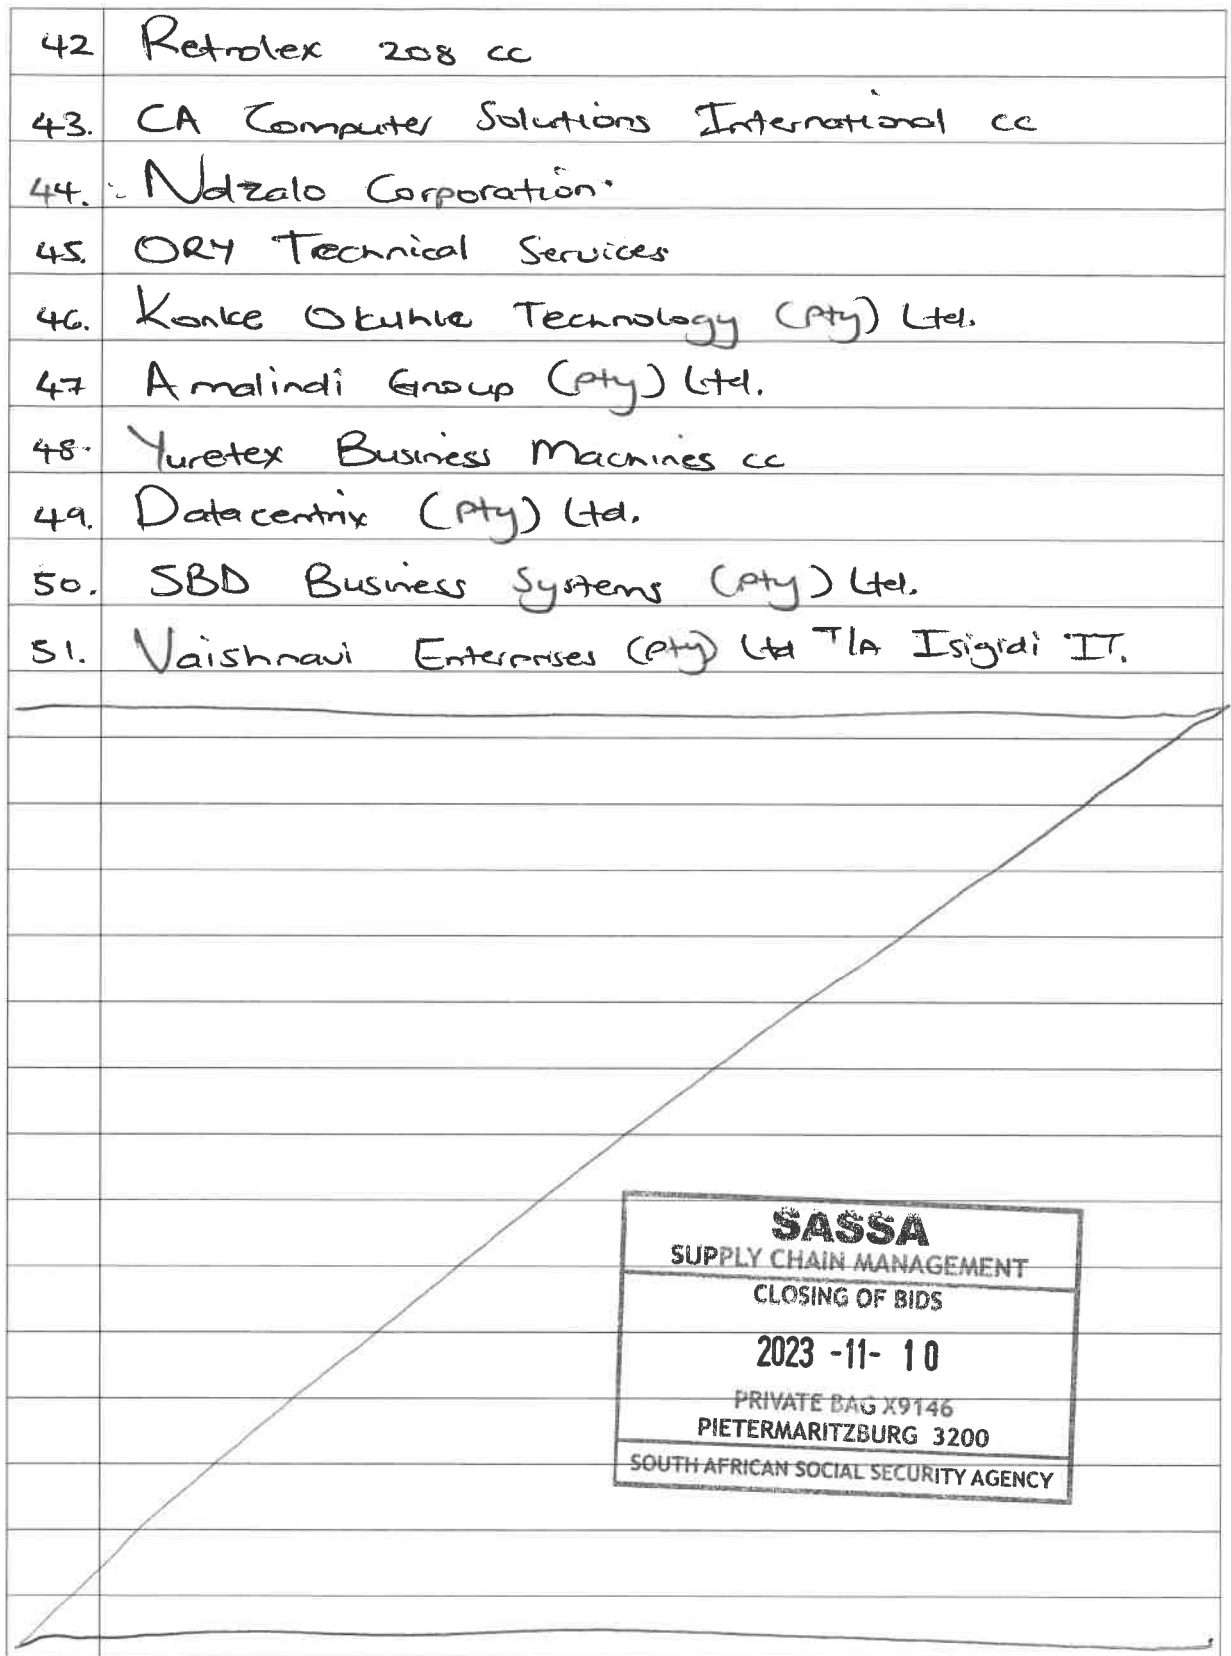 42 Retrolex 208 cc
43. CA Computer Solutions International cc
44. Ndzalo Corporation.
45. ORY Technical Services
46. Konke Okuhle Technology (Pty) Ltd.
47 Amalindi Group (Pty) Ltd.
48. Yuretex Business Machines cc
49. Datacentrix (Pty) Ltd.
50. SBD Business Systems (Pty) Ltd.
51. Vaishnavi Enterprises (Pty) Ltd T/A Isigidi IT.
SASSA
SUPPLY CHAIN MANAGEMENT
CLOSING OF BIDS
2023 -11- 10
PRIVATE BAG X9146
PIETERMARITZBURG 3200
SOUTH AFRICAN SOCIAL SECURITY AGENCY